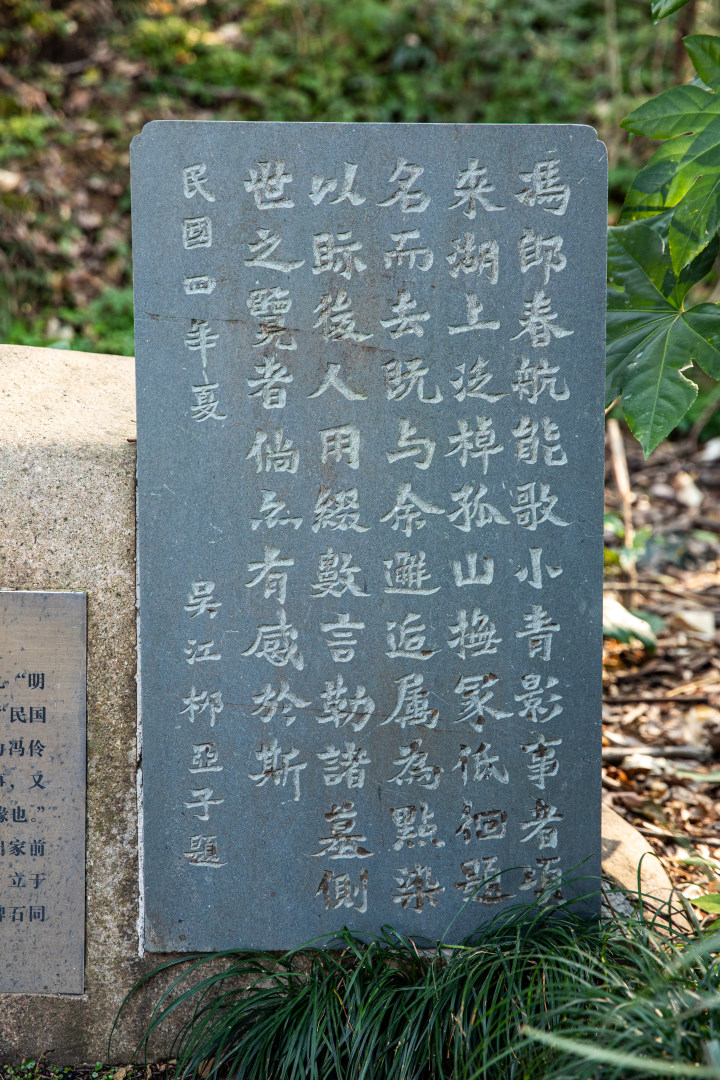 馮郎春航能歌小青影事者頃
来湖上泛棹孤山撫冢低徊題
名而去既与余邂逅属為點染
以眎後人用綴數言勒諸墓側
世之覽者倘亦有感於斯
民國四年夏 吴江柳亞子題
“明
“民国
冯伶
，又
也。”
家前
立于
石同